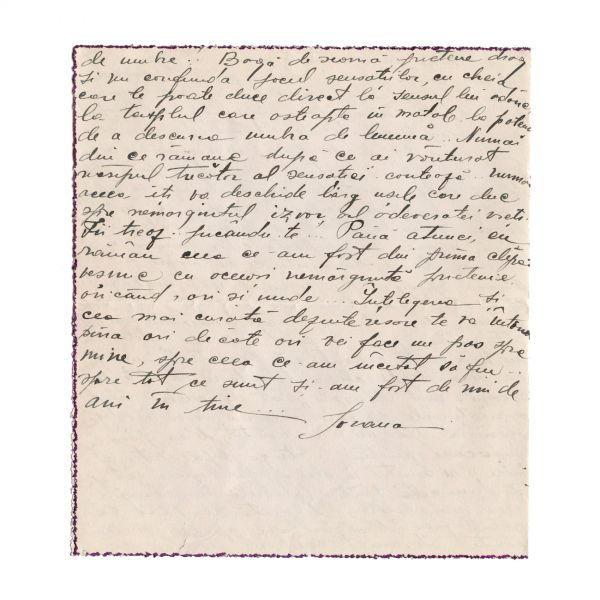 de umbre!. Bagă de seamă prietene drag
și nu confunda jocul sensațiilor, cu cheia
care te poate duce direct la sensul lui adânc
la templul care așteaptă în
de a descurca umbra de lumină... Numai
din ce rămâne după ce ai vânturat
nisipul trecător al senzației contează.. numai
aceea îți va deschide larg ușile care duc
spre nemărginitul izvor, al adevăratei vieți.
Fii treaz jucându-te!. Până atunci, eu
rămân ceea ce-am fost din prima clipă
vesnic cu aceeași nemărginită prietenie
oricând, ori și unde... Înțelegerea și
cea mai curată dezinteresare te va întâm
pina ori de câte ori vei face un pas spre
mine, spre ceea ce-am încetat să fiu..
spre tot ce sunt și-am fost de mii de
ani în tine....
Ioana.